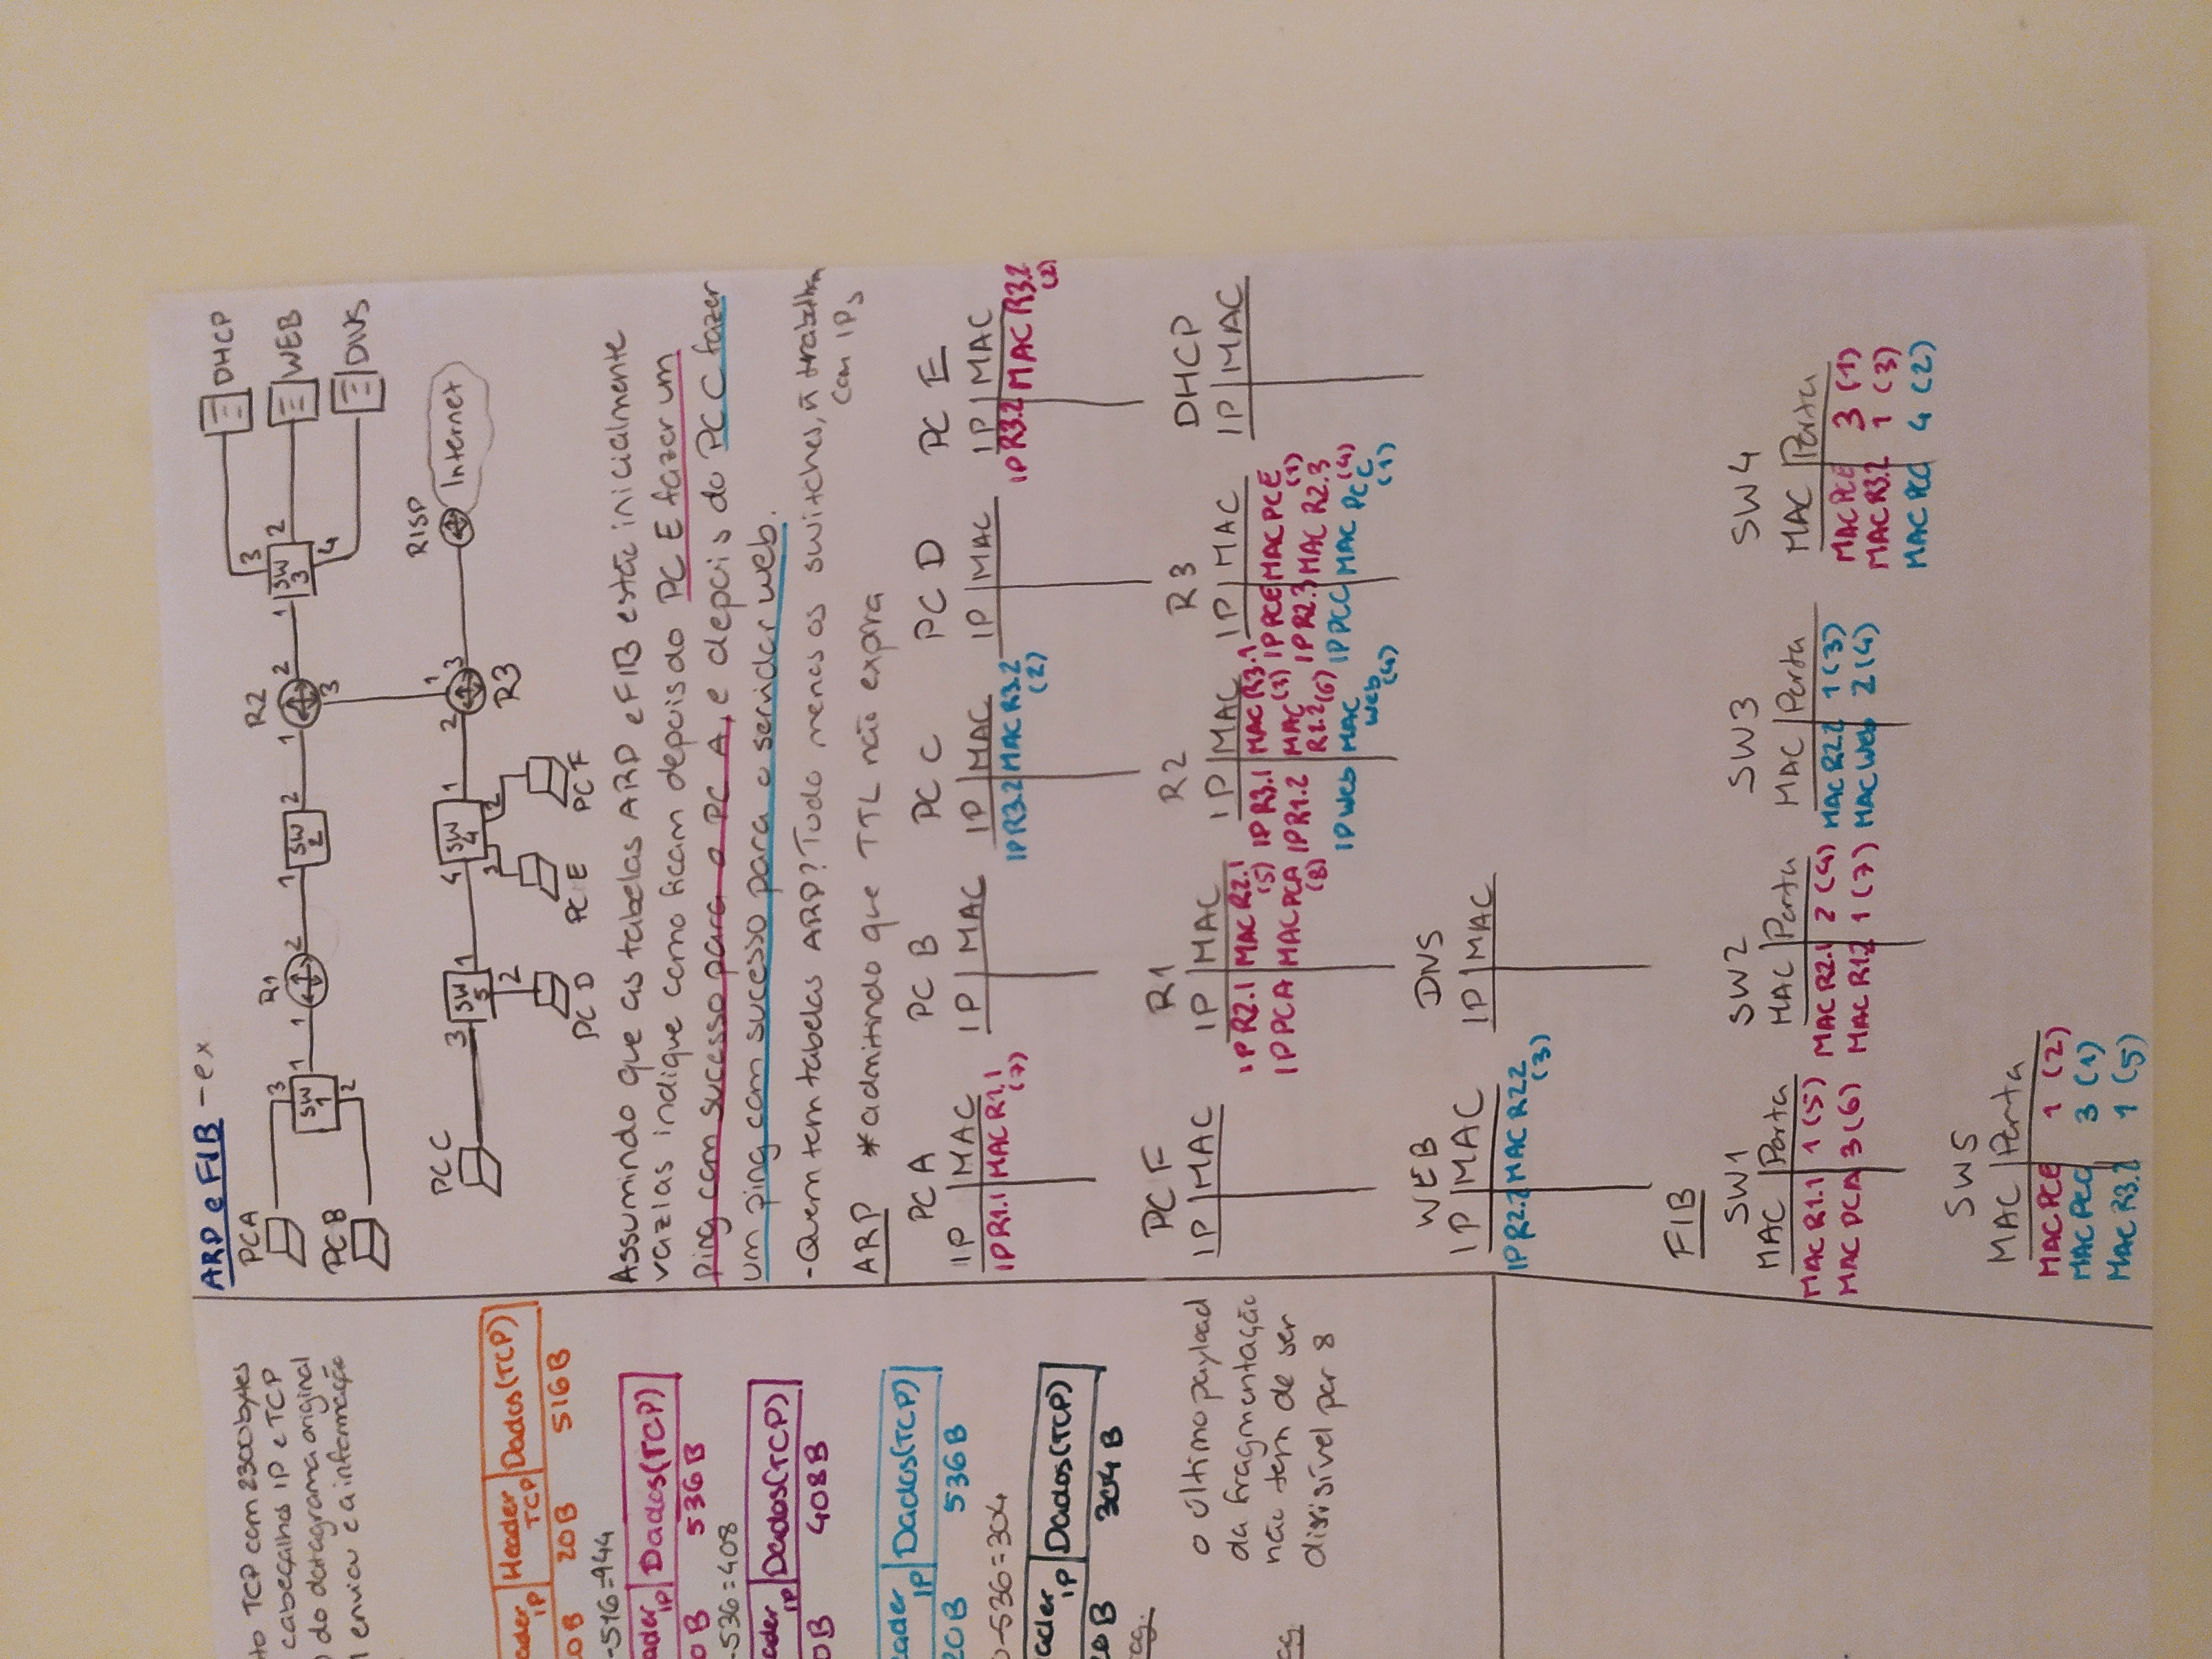 ARP e FIB - ex
PCA
PCB
3
SW
1
1
2
1
R1
2
1
SW
2
2
1
R2
2
3
1
SW
3
3
2
4
DHCP
WEB
DNS
PC C
3
SW
5
1
2
PC D
4
SW
4
1
3
2
PC E
PC F
2
1
3
R3
RISP
Internet
Assumindo que as tabelas ARP e FIB estão inicialmente
vazias indique como ficam depois do PC E fazer um
ping com sucesso para o PC A, e depois do PC C fazer
um ping com sucesso para o servidor web.
- Quem tem tabelas ARP? Tudo menos os switches, ñ trabalham
com IPs
ARP *admitindo que TTL não expira
PC A
IP | MAC
IPR1.1 MAC R1.1
(7)
PC B
IP | MAC
PC C
IP | MAC
IPR3.2 MAC R3.2
(2)
PC D
IP | MAC
PC E
IP | MAC
IPR3.2 MAC R3.2
(2)
PC F
IP | MAC
R1
IP | MAC
IPR2.1 MAC R2.1
(5)
IPPCA MAC PCA
(8)
R2
IP | MAC
IPR3.1 MAC R3.1
(3)
IPR1.2 MAC
R1.2 (6)
IPWeb MAC
Web (4)
R3
IP | MAC
IPPCE MAC PCE
(1)
IPR2.3 MAC R2.3
(4)
IPPCC MAC PC C
(1)
DHCP
IP | MAC
WEB
IP | MAC
IPR2.2 MAC R2.2
(3)
DNS
IP | MAC
FIB
SW1
MAC | Porta
MAC R1.1 1 (5)
MAC PCA 3 (6)
SW2
MAC | Porta
MAC R2.1 2 (4)
MAC R1.2 1 (7)
SW3
MAC | Porta
MAC R2.2 1 (3)
MAC Web 2 (4)
SW4
MAC | Porta
MAC PCE 3 (1)
MAC R3.2 1 (3)
MAC PCC 4 (2)
SW5
MAC | Porta
MAC PCE 1 (2)
MAC PCC 3 (1)
MAC R3.2 1 (5)
TCP com 2300 bytes
cabeçalhos IP e TCP
do datagrama original
enviou e a informação
IP | Header TCP | Dados (TCP)
20B 516B
-516=944
IP | Dados (TCP)
536B
-536=408
IP | Dados (TCP)
408B
IP | Dados (TCP)
20B 536B
-536=304
IP | Dados (TCP)
304B
o último payload
da fragmentação
não tem de ser
divisível por 8